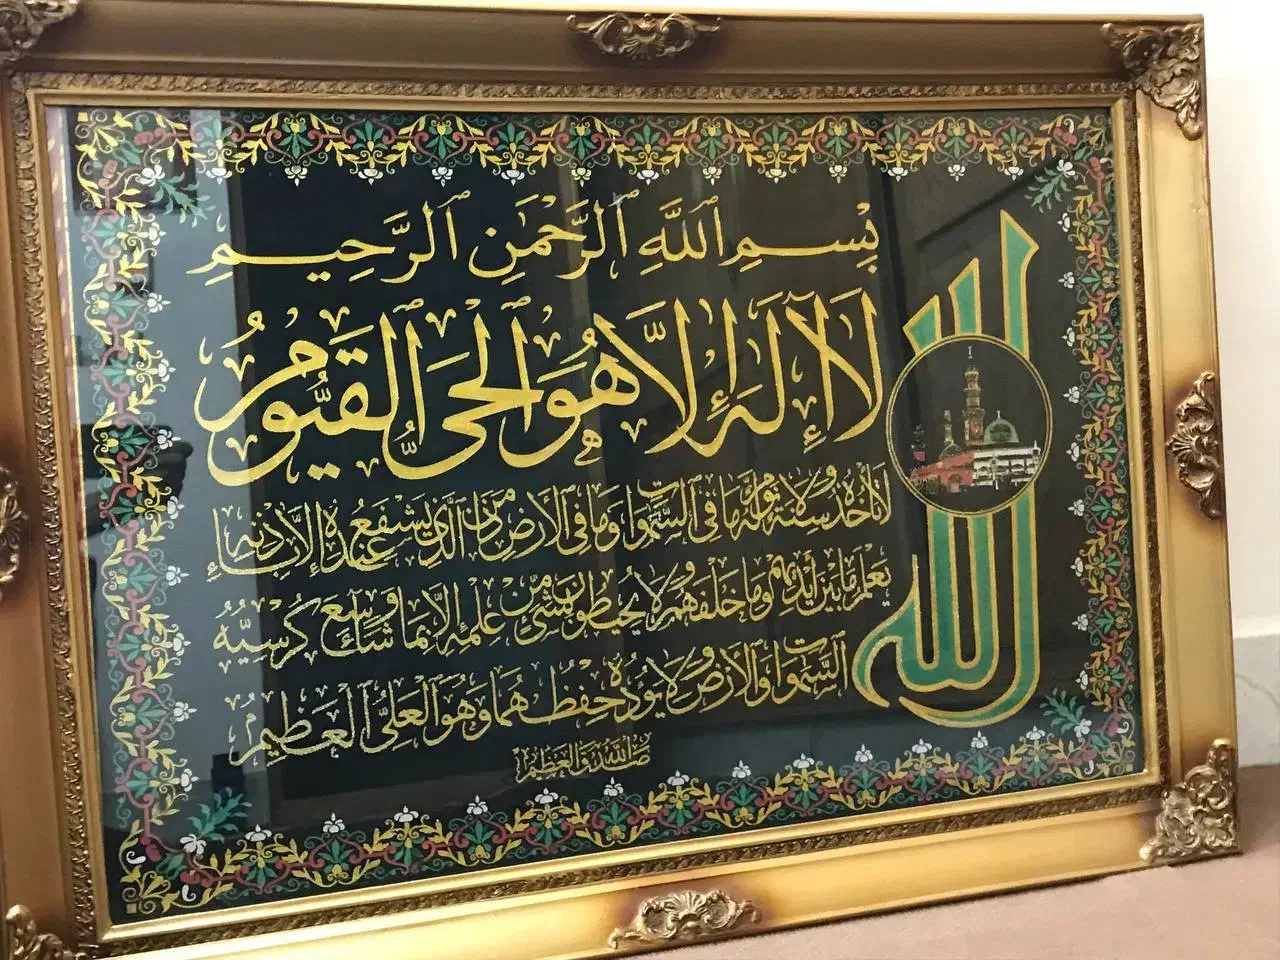 بِسْمِ ٱللَّهِ ٱلرَّحْمَٰنِ ٱلرَّحِيمِ
الله
لَآ إِلَٰهَ إِلَّا هُوَ ٱلْحَىُّ ٱلْقَيُّومُ
لا تأخذه سنة ولا نوم له ما فى السموات وما فى الأرض من ذا الذى يشفع عنده إلا بإذنه
يعلم ما بين أيديهم وما خلفهم ولا يحيطون بشىء من علمه إلا بما شاء وسع كرسيه
السموات والأرض ولا يؤده حفظهما وهو العلى العظيم
صدق الله العظيم